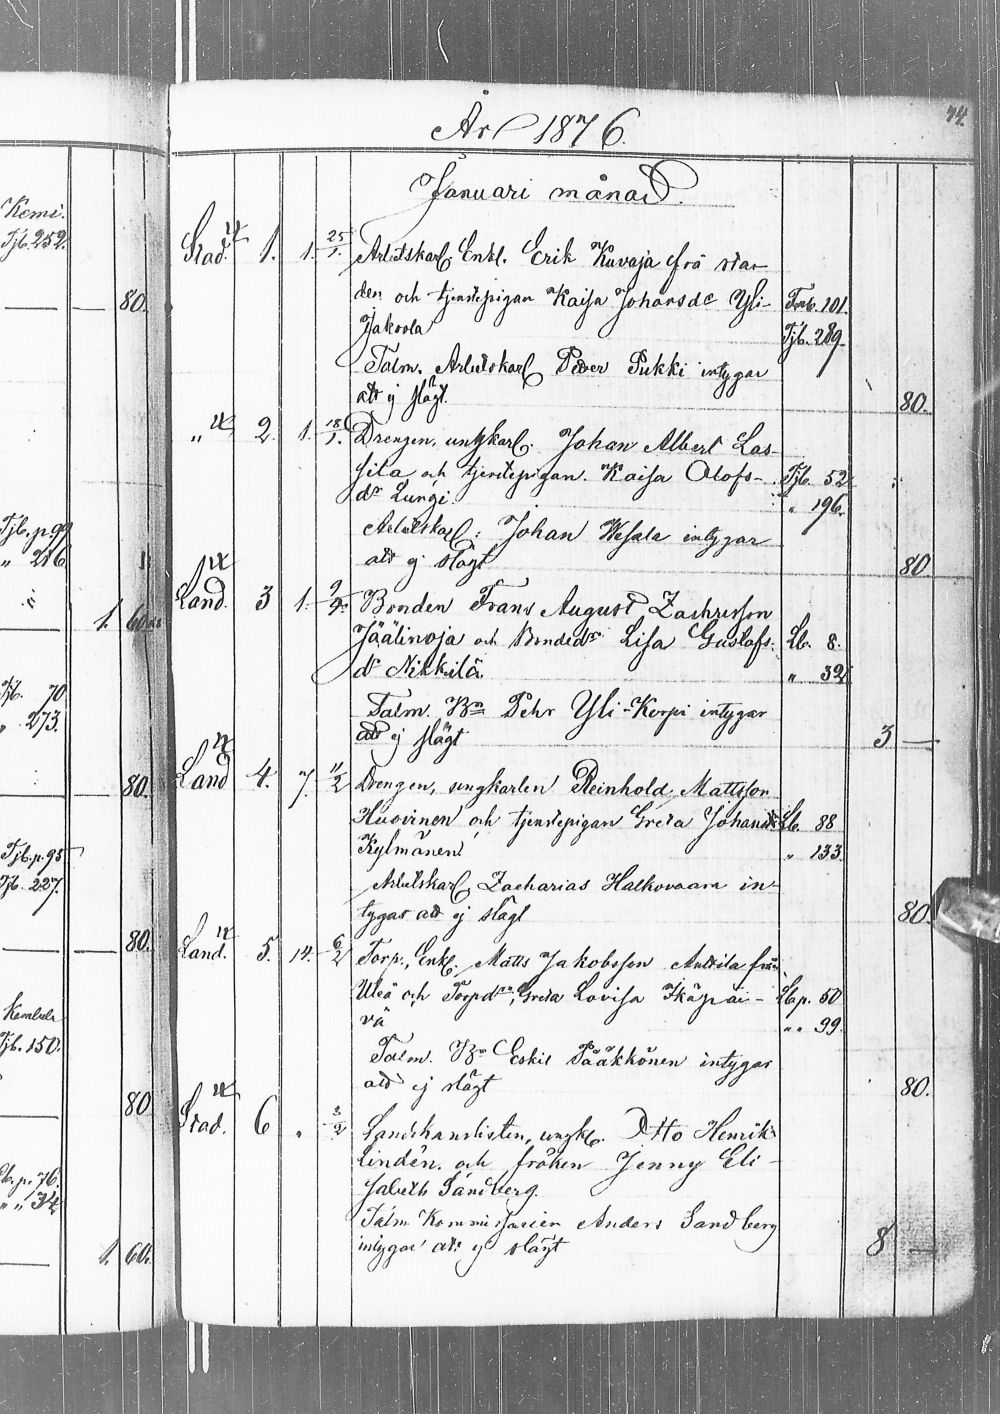 74.
År 1876.
Januari månad.
Kemi.
Tjb. 252.
80.
Stad. 1. 1. 25/1. Arbetskarl. Enkl. Erik Kuvaja frå sta-
den och tjenstepigan Kaisa Johansdr Yli-
Jakoola
Tnb. 101.
Tjb. 289.
Talm. Arbetskarl Petter Pukki intygar
att ej slägt.
80.
" 2. 1. 18/1. Drengen, ungkarl. Johan Albert Las-
sila och tjenstepigan. Kaisa Olofs-
dr Lungi.
Tjb. 52
" 196.
Arbetskarl: Johan Wesala intygar
att ej slägt
80
Tjb. p. 99
" 216
1. 60
Land. 3 1. Bonden Frans August Zachrisson
Jäälinoja och Bondedr Lisa Gustafs-
dr Nikkilä.
Lb. 8.
" 32
Talm. Bn Pehr Yli-Korpi intygar
att ej slägt
3 —
Tjb. 70
" 273.
80.
Land 4. 7. 11/2 Drengen, ungkarlen Reinhold Mattsson
Huovinen och tjenstepigan Greta Johansdr
Kylmänen
Lb. 88
" 133.
Arbetskarl Zacharias Halkovaara in-
tygar att ej slägt
80.
Tjb. p. 95
Tjb. 227.
80.
Land. 5. 14. 6/2 Torp., Enkl. Matts Jakobsson Anttila från
Uleå och Torpdrn, Greta Lovisa Ikäpäi-
vä
Lb p. 50
" " 99.
Talm. Bn Eskil Pääkkönen intygar
att ej slägt
80.
Kempele
Tjb. 150.
80
Stad. 6 " 3/2 Landthandlisten, ungkl. Otto Henrik
Lindén. och fröken Jenny Eli-
sabeth Sandberg.
Talm Kommissarien Anders Sandberg
intygar att ej slägt
8 —
Lb. p. 76.
" " 34
1. 60.